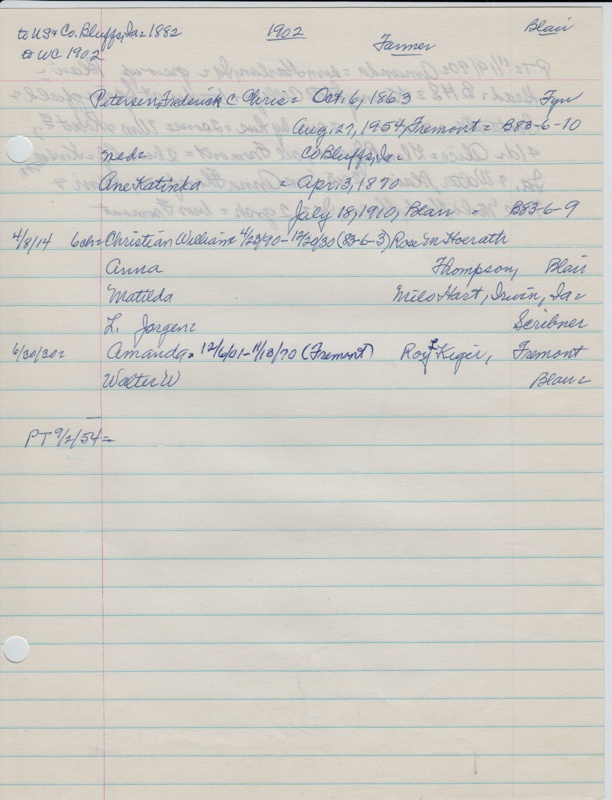 to US & Co. Bluffs, Ia = 1882 1902 Blair
to WC 1902 Farmer
Petersen, Frederick C Chris = Oct. 6, 1863 Fyn
Aug. 27, 1954, Fremont = B83-6-10
Co Bluffs, Ia =
Ane Katinka = Apr. 3, 1870
July 18, 1910, Blair = B83-6-9
4/8/14 6ch = Christian William = 4/23/90 - 12/20/30 (83-6-3) Rose M Hoerath
Anna Thompson, Blair
Matilda Milo Hart, Irwin, Ia =
L. Jorgen = Scribner
6/30/30 = Amanda = 12/6/01 - 11/13/70 (Fremont) Roy L Kiger, Fremont
Walter W Blair =
PT 9/2/54 =